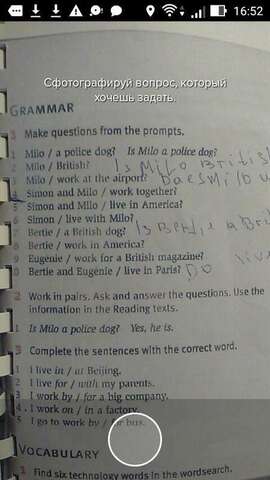 16:52
Сфотографируй вопрос, который
хочешь задать.
GRAMMAR
1 Make questions from the prompts.
1 Milo / a police dog? Is Milo a police dog?
2 Milo / British? Is Milo British
3 Milo / work at the airport? Does Milo w
4 Simon and Milo / work together?
5 Simon and Milo / live in America?
6 Simon / live with Milo?
7 Bertie / a British dog? Is Bertie a Bri
8 Bertie / work in America?
9 Eugenie / work for a British magazine?
0 Bertie and Eugenie / live in Paris? Do live
2 Work in pairs. Ask and answer the questions. Use the
information in the Reading texts.
1 Is Milo a police dog? Yes, he is.
3 Complete the sentences with the correct word.
1 I live in / at Beijing.
2 I live for / with my parents.
3 I work by / for a big company.
4 I work on / in a factory.
5 I go to work by / for bus.
VOCABULARY
1 Find six technology words in the wordsearch.